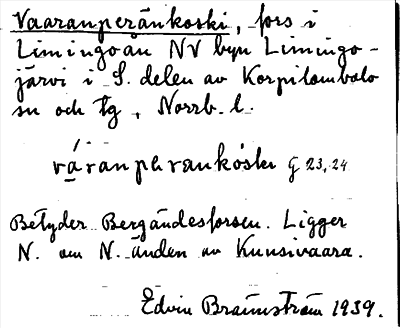 Vaaranperänkoski, fors i
Limingoån NV byn Limingo-
järvi i S. delen av Korpilombolo
sn och tg, Norrb. l.
G 23,24
Betyder Bergändesforsen. Ligger
N. om N. änden av Kuusivaara.
Edvin Brännström 1939.